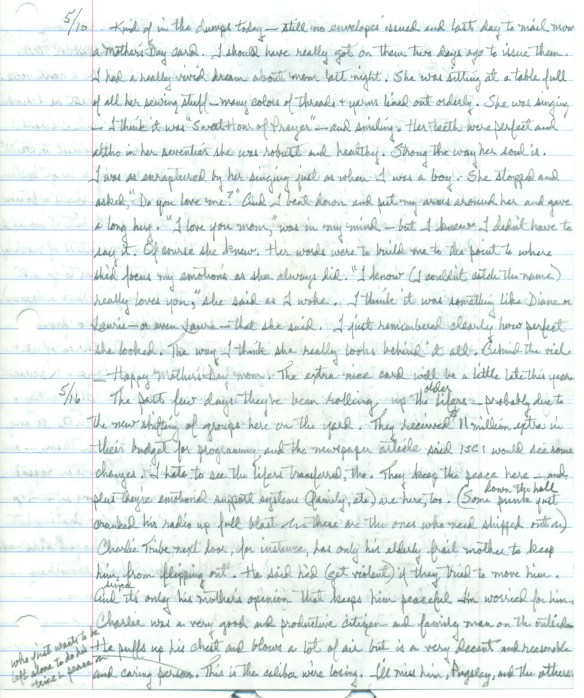 5/10 Kind of in the dumps today — still no envelopes issued and last day to mail mom
a Mother's Day card. I should have really got on them two days ago to issue them.
I had a really vivid dream about mom last night. She was sitting at a table full
of all her sewing stuff — many colors of threads + yarns lined out orderly. She was singing
— I think it was "Sweet Hour of Prayer" — and smiling. Her teeth were perfect and
altho in her seventies she was robust and healthy. Strong the way her soul is.
I was as enraptured by her singing just as when I was a boy. She stopped and
asked, "Do you love me?" And I bent down and put my arms around her and gave
a long hug. "I love you mom," was in my mind — but I knew I didn't have to
say it. Of course she knew. Her words were to build me to the point to where
she'd focus my emotions as she always did. "I know (I couldn't catch the name)
really loves you," she said as I woke. I think it was something like Diane or
Laurie — or even Laura — that she said. I just remembered clearly how perfect
she looked. The way I think she really looks behind it all. Behind the veil
— Happy Mother's Day mom. The extra nice card will be a little late this year.
5/16 The past few days they've been rolling up the older lifers — probably due to
the new shifting of groups here on the yard. They received $11 million extra in
their budget for programming and the newspaper article said ISCI would see some
changes. I hate to see the lifers transferred, tho. They keep the peace here — and
plus they're emotional support systems (family, etc) are here, too. (Some punk down the hall just
cranked his radio up full blast — there are the ones who need shipped out)
Charlie Tribe next door, for instance, has only his elderly frail mother to keep
him from flipping out. He said he'd (get violent) if they tried to move him.
And it's only his mother's opinion that keeps him peaceful. I'm worried for him.
Charlie was a very good and productive citizen and family man on the outside
He puffs up his chest and blows a lot of air but is a very decent and reasonable
who just wants to be
left alone to do his
time in peace
and caring person. This is the caliber we're losing. I'll miss him, Pugsley, and the others